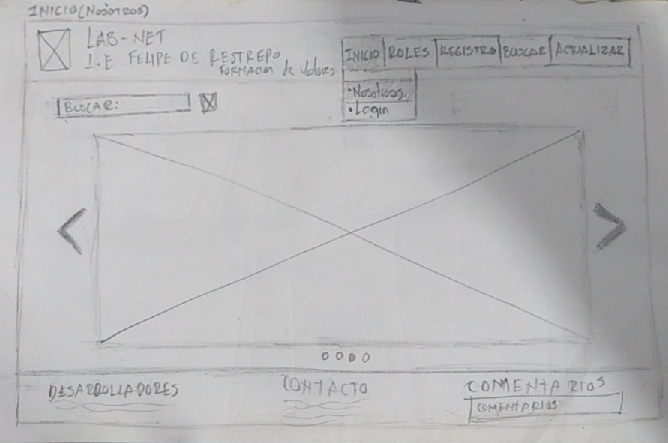 INICIO (Nosotros)
LAS-NET
I.E FELIPE DE RESTREPO
FORMACION de Valores
INICIO ROLES REGISTRO BUSCAR ACTUALIZAR
•Nosotros.
•Login
BUSCAR:
DESARROLLADORES CONTACTO COMENTARIOS
COMENTARIOS: